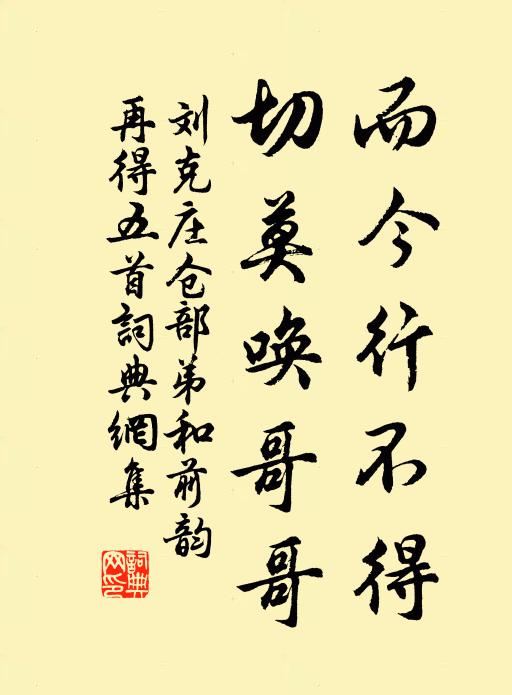 而今行不得
切莫唤哥哥
刘克庄仓部弟和前韵
再得五首詞典網集
詞典
网印